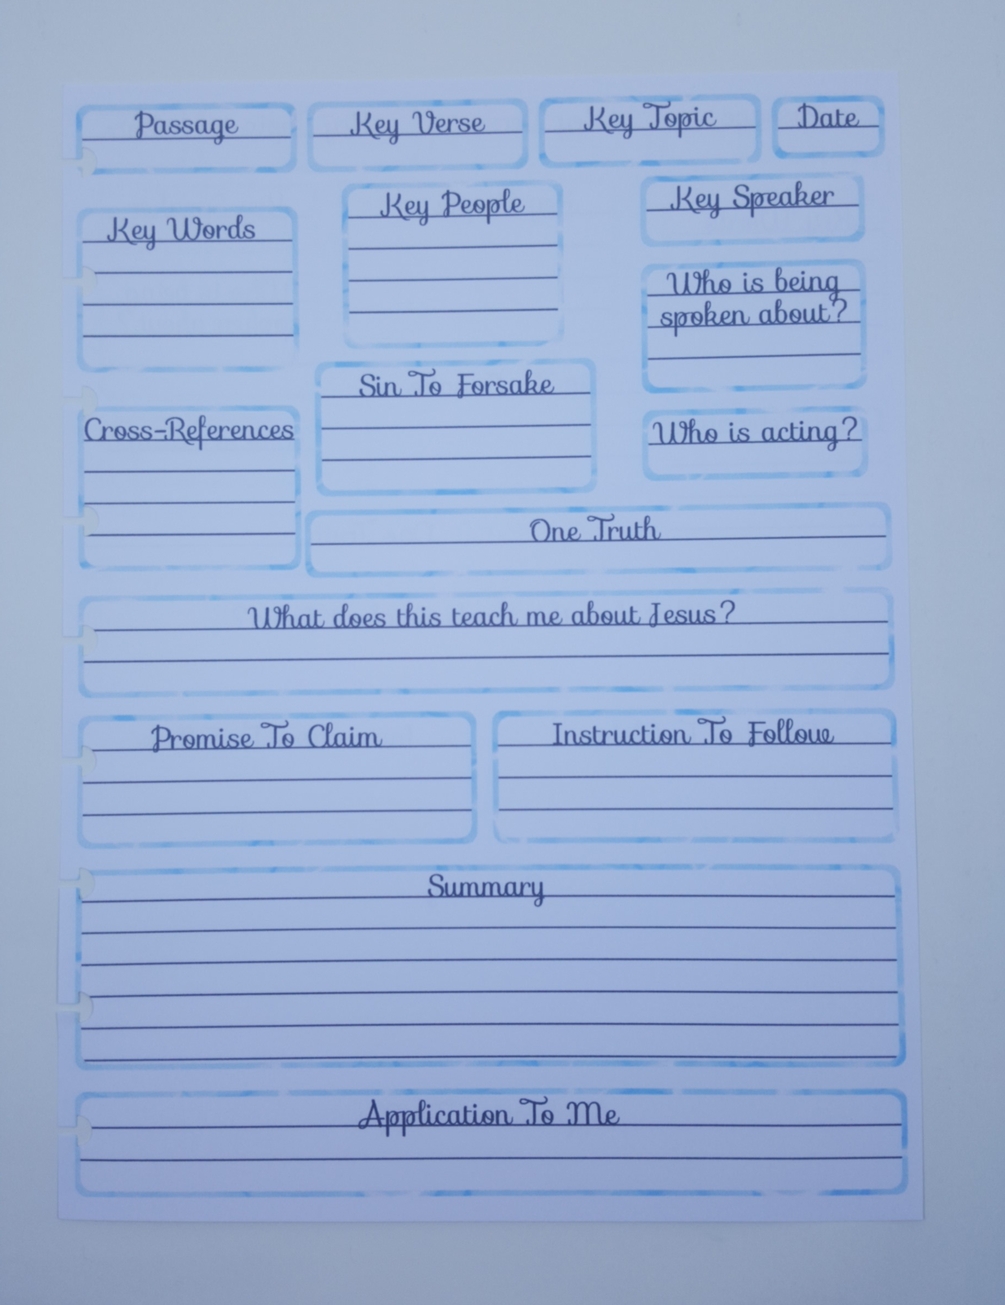 Passage
Key Verse
Key Topic
Date
Key Words
Key People
Key Speaker
Who is being
spoken about?
Sin To Forsake
Cross-References
Who is acting?
One Truth
What does this teach me about Jesus?
Promise To Claim
Instruction To Follow
Summary
Application To Me